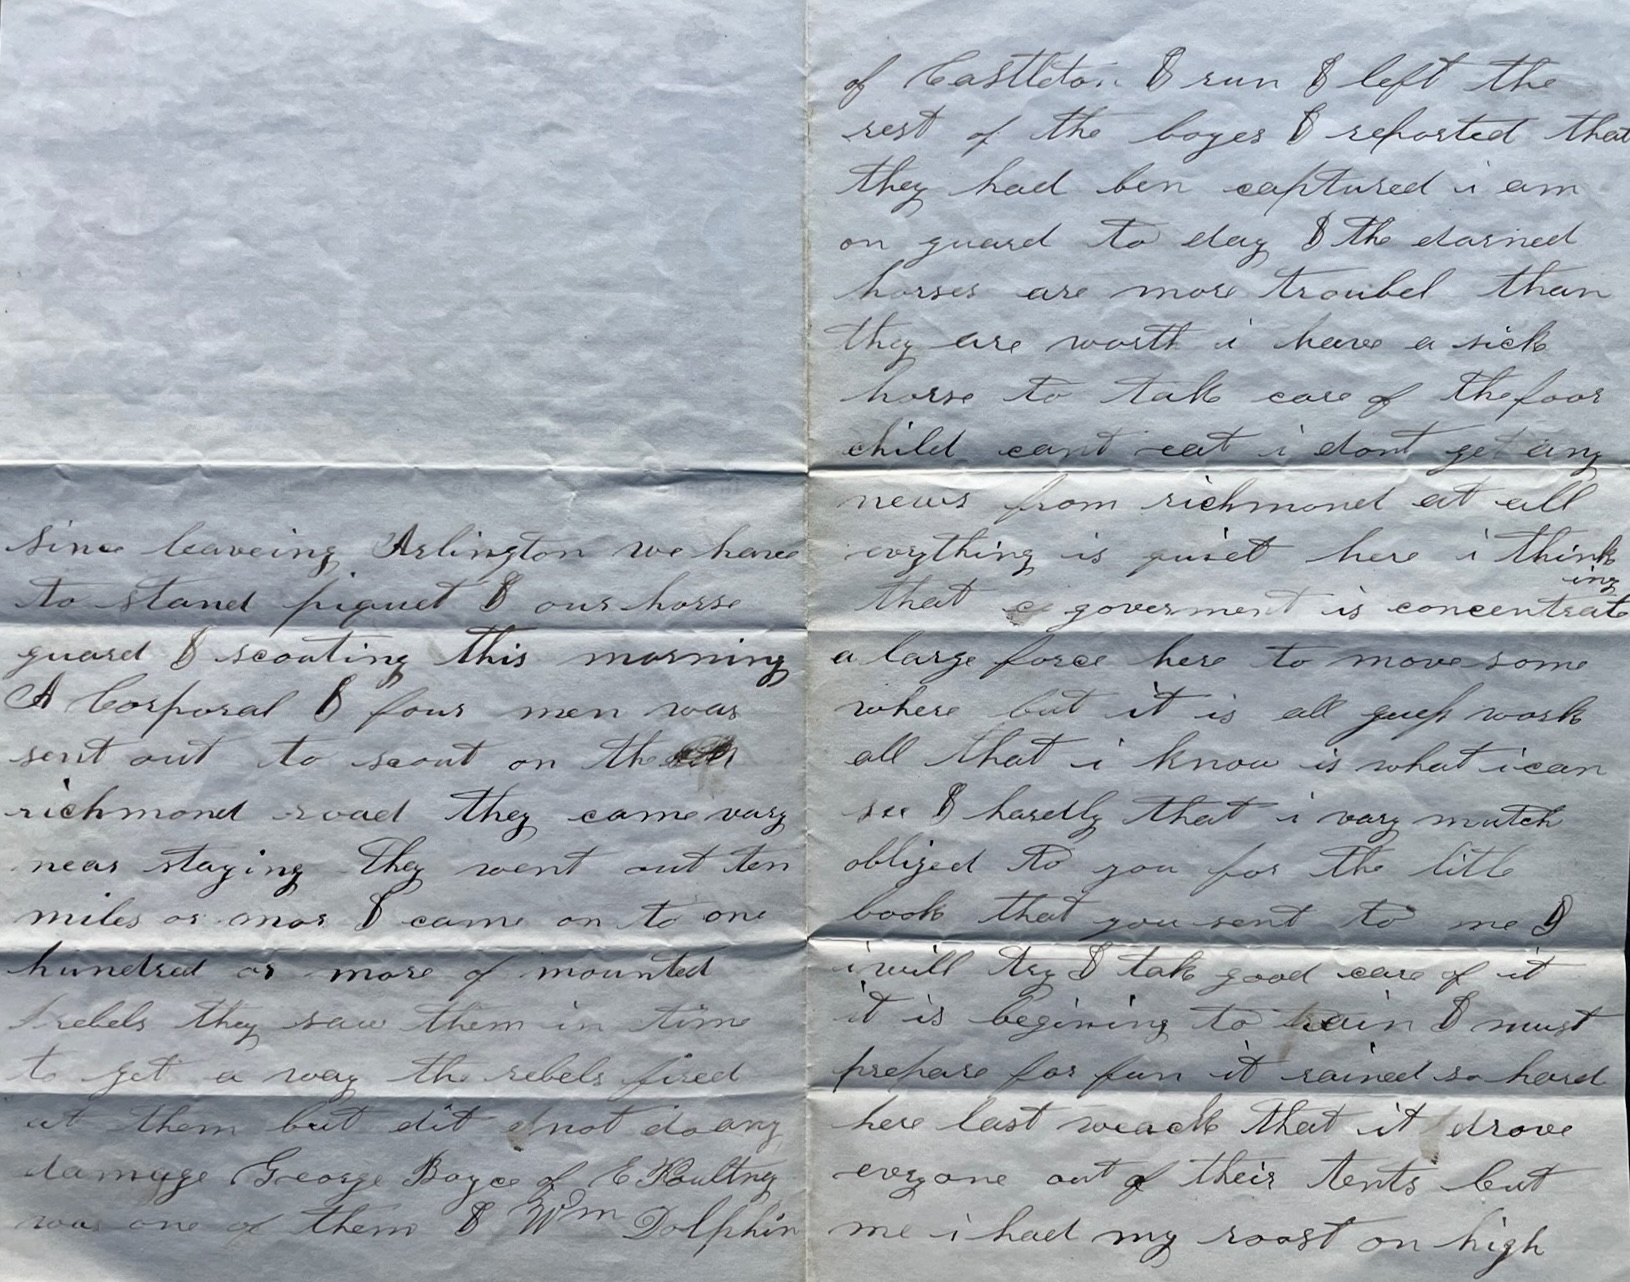 since leaveing Arlington we have
to stand piquet & our horse
guard & scouting this morning
A Corporal & four men was
sent out to scout on the
richmond road they came vary
near staying They went out ten
miles or mor & came on to one
hundred or more of mounted
rebels they saw them in time
to get a way the rebels fired
at them but dit not do any
damage George Boyce of E Poultny
was one of them & Wm Dolphin
of Castleton & run & left the
rest of the boyes & reported that
they had ben captured i am
on guard to day & the darned
horses are more troubel than
they are worth i have a sick
horse to take care of the poor
child cant eat i dont get any
news from richmond at all
evrything is quiet here i think
that goverment is concentrateing
a large force here to move some
where but it is all guess work
all that i know is what i can
see & hardly that i vary mutch
obliged to you for the littl
book that you sent to me &
i will try & take good care of it
it is begining to rain & must
prepare for fun it rained so hard
here last weack that it drove
evryone out of their tents but
me i had my roost on high